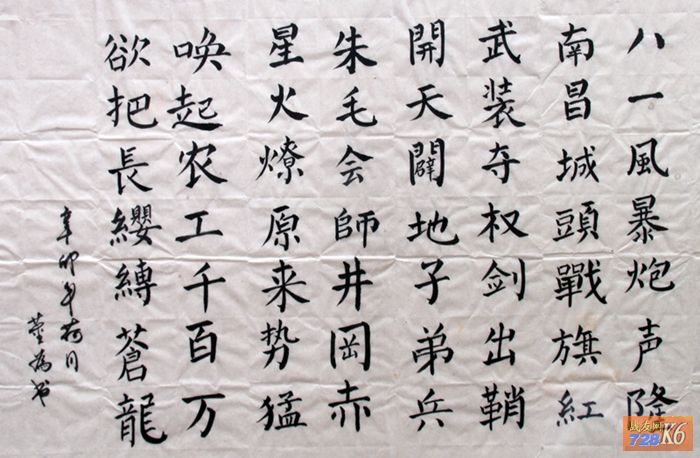 八一風暴炮声隆
南昌城頭戰旗紅
武装夺权剑出鞘
開天闢地子弟兵
朱毛会師井岡赤
星火燎原来势猛
唤起农工千百万
欲把長纓縛蒼龍
辛卯年荷月
董為书
战友网
728K6